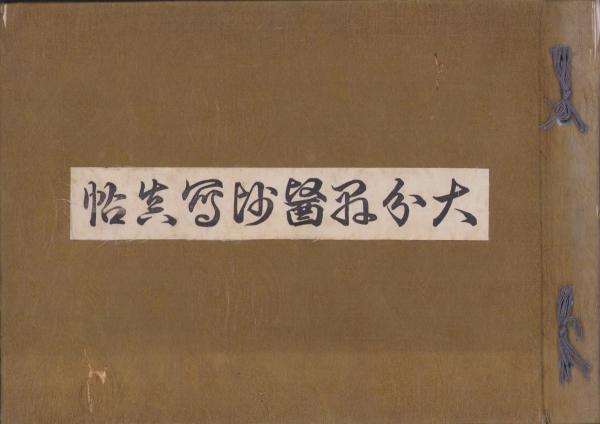 大分縣醫師寫真帖